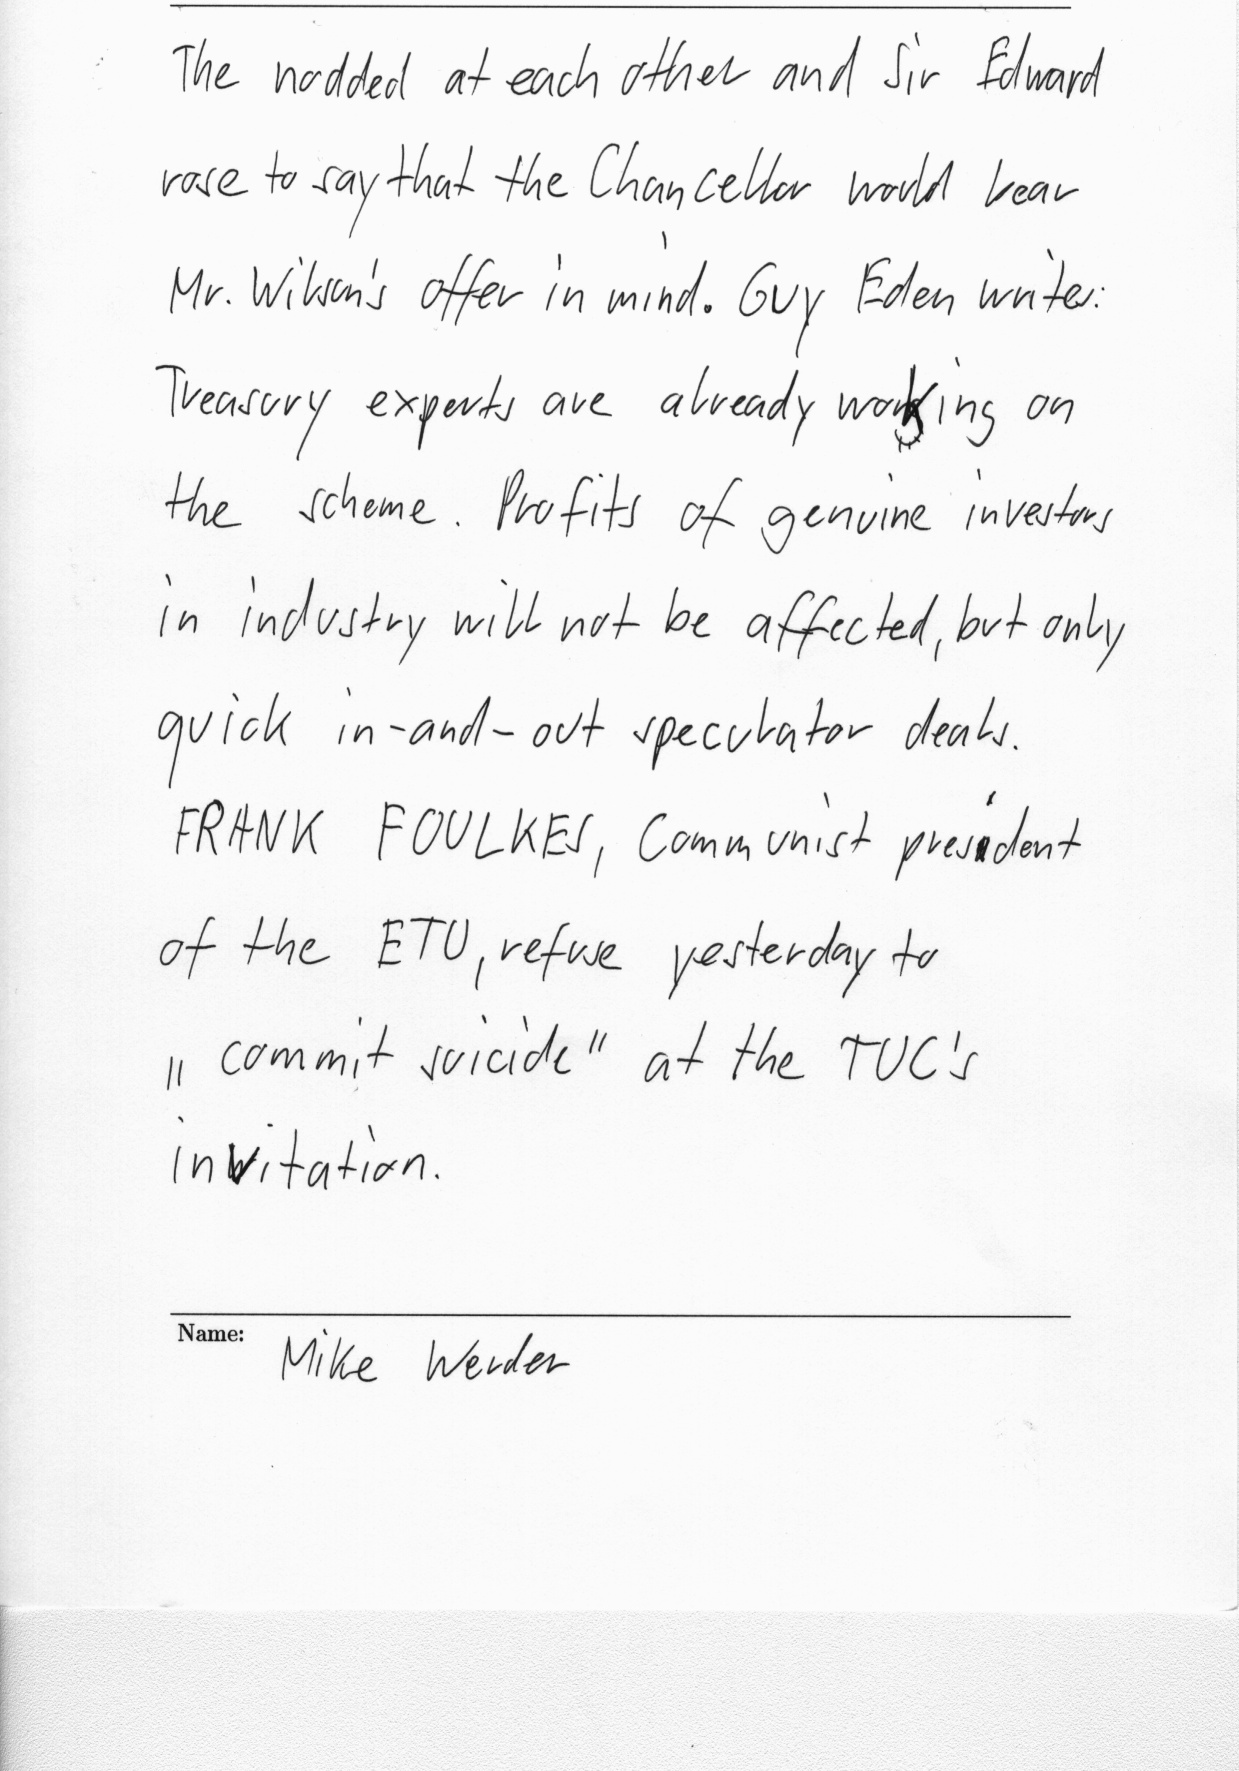 The nodded at each other and Sir Edward
rose to say that the Chancellor would bear
Mr. Wilson's offer in mind. Guy Eden writes:
Treasury experts are already working on
the scheme. Profits of genuine investors
in industry will not be affected, but only
quick in-and-out speculator deals.
FRANK FOULKES, Communist president
of the ETU, refuse yesterday to
„commit suicide" at the TUC's
invitation.
Name:
Mike Werder